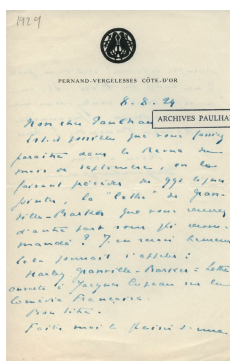 1929
PERNAND-VERGELESSES CÔTE-D'OR
8.8.29
ARCHIVES PAULHAN
Mon cher Paulhan
Est-il possible que vous fassiez
paraître dans la Revue du
mois de septembre, en la
faisant précéder de
jointes, la "lettre" de Gran-
ville-Barker que vous recevrez
d'autre part sous pli recom-
mandé ? J'en serais heureux
Cela pourrait s'appeler :
Harley Granville-Barker : Lettre
ouverte à Jacques Copeau sur la
Comédie Française.
Faites moi le plaisir d'une